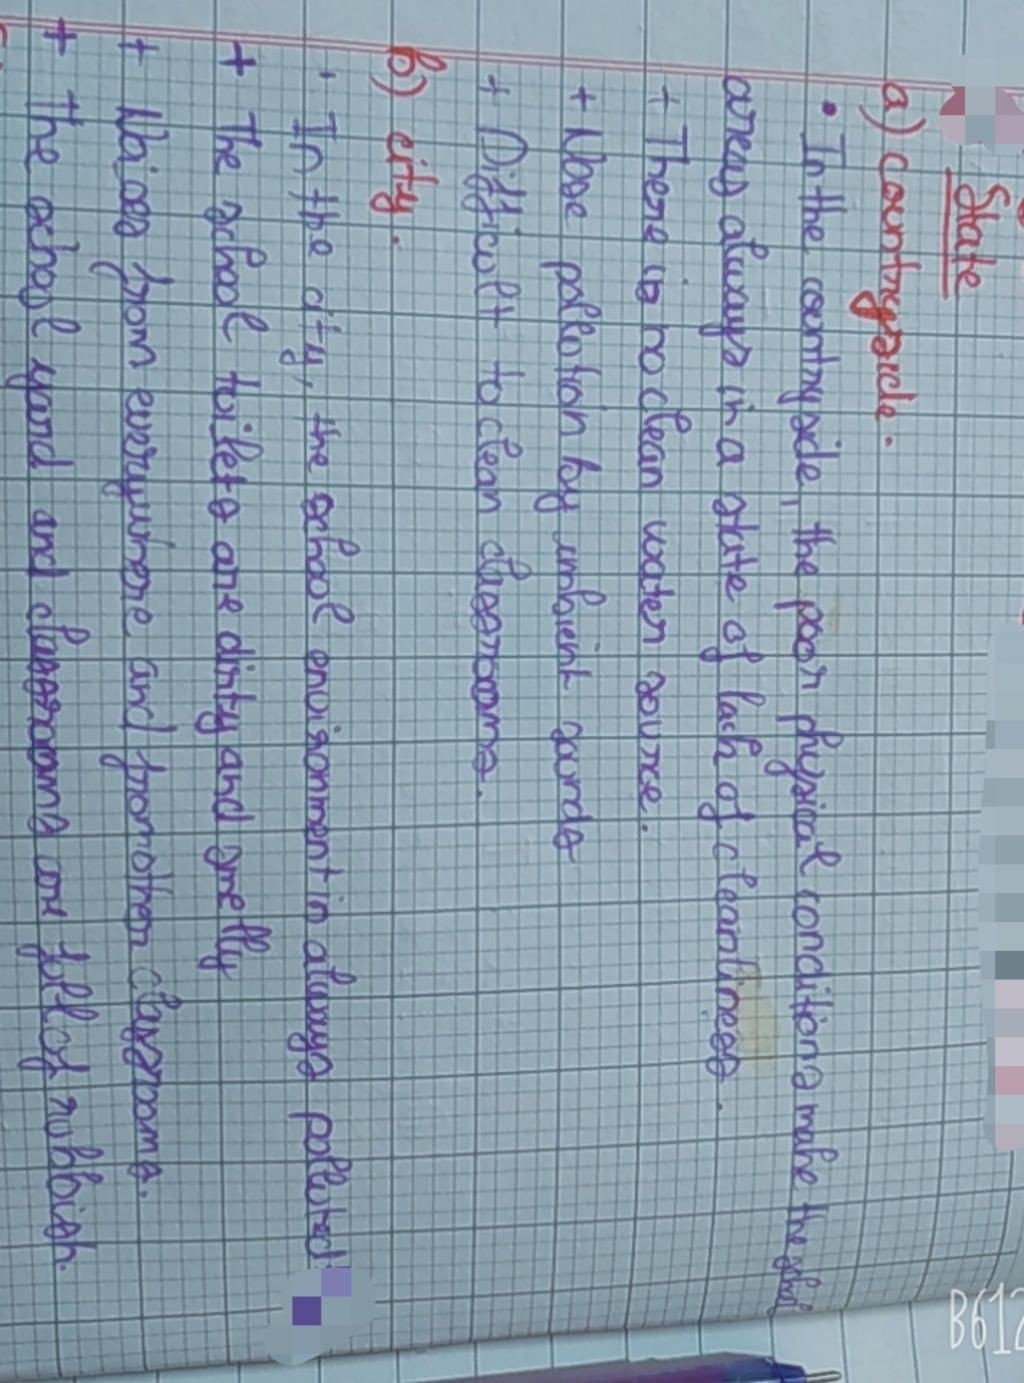 State
a) countryside.
• In the contryside, the poor physical conditions make the shol
areas always in a state of lack of cleanliness.
+ There is no clean water source.
+ Nose pollution by imbient sounds
+ Difficult to clean classrooms.
b) city.
+ In the city, the school environment is always polluted
+ The school toilets are dirty and smelly
+ Noises from everywhere and from other classrooms.
+ The school yard and classrooms are full of rubbish.
B612